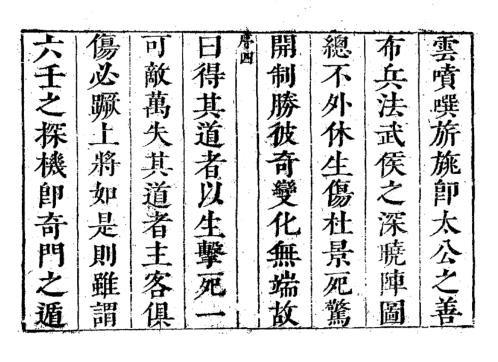 雲噴噀旂旐卽太公之善
布兵法武侯之深曉陣圖
總不外休生傷杜景死驚
開制勝彼奇變化無端故
序四
曰得其道者以生擊死一
可敵萬失其道者主客俱
傷必蹶上將如是則雖謂
六壬之探機卽奇門之遁